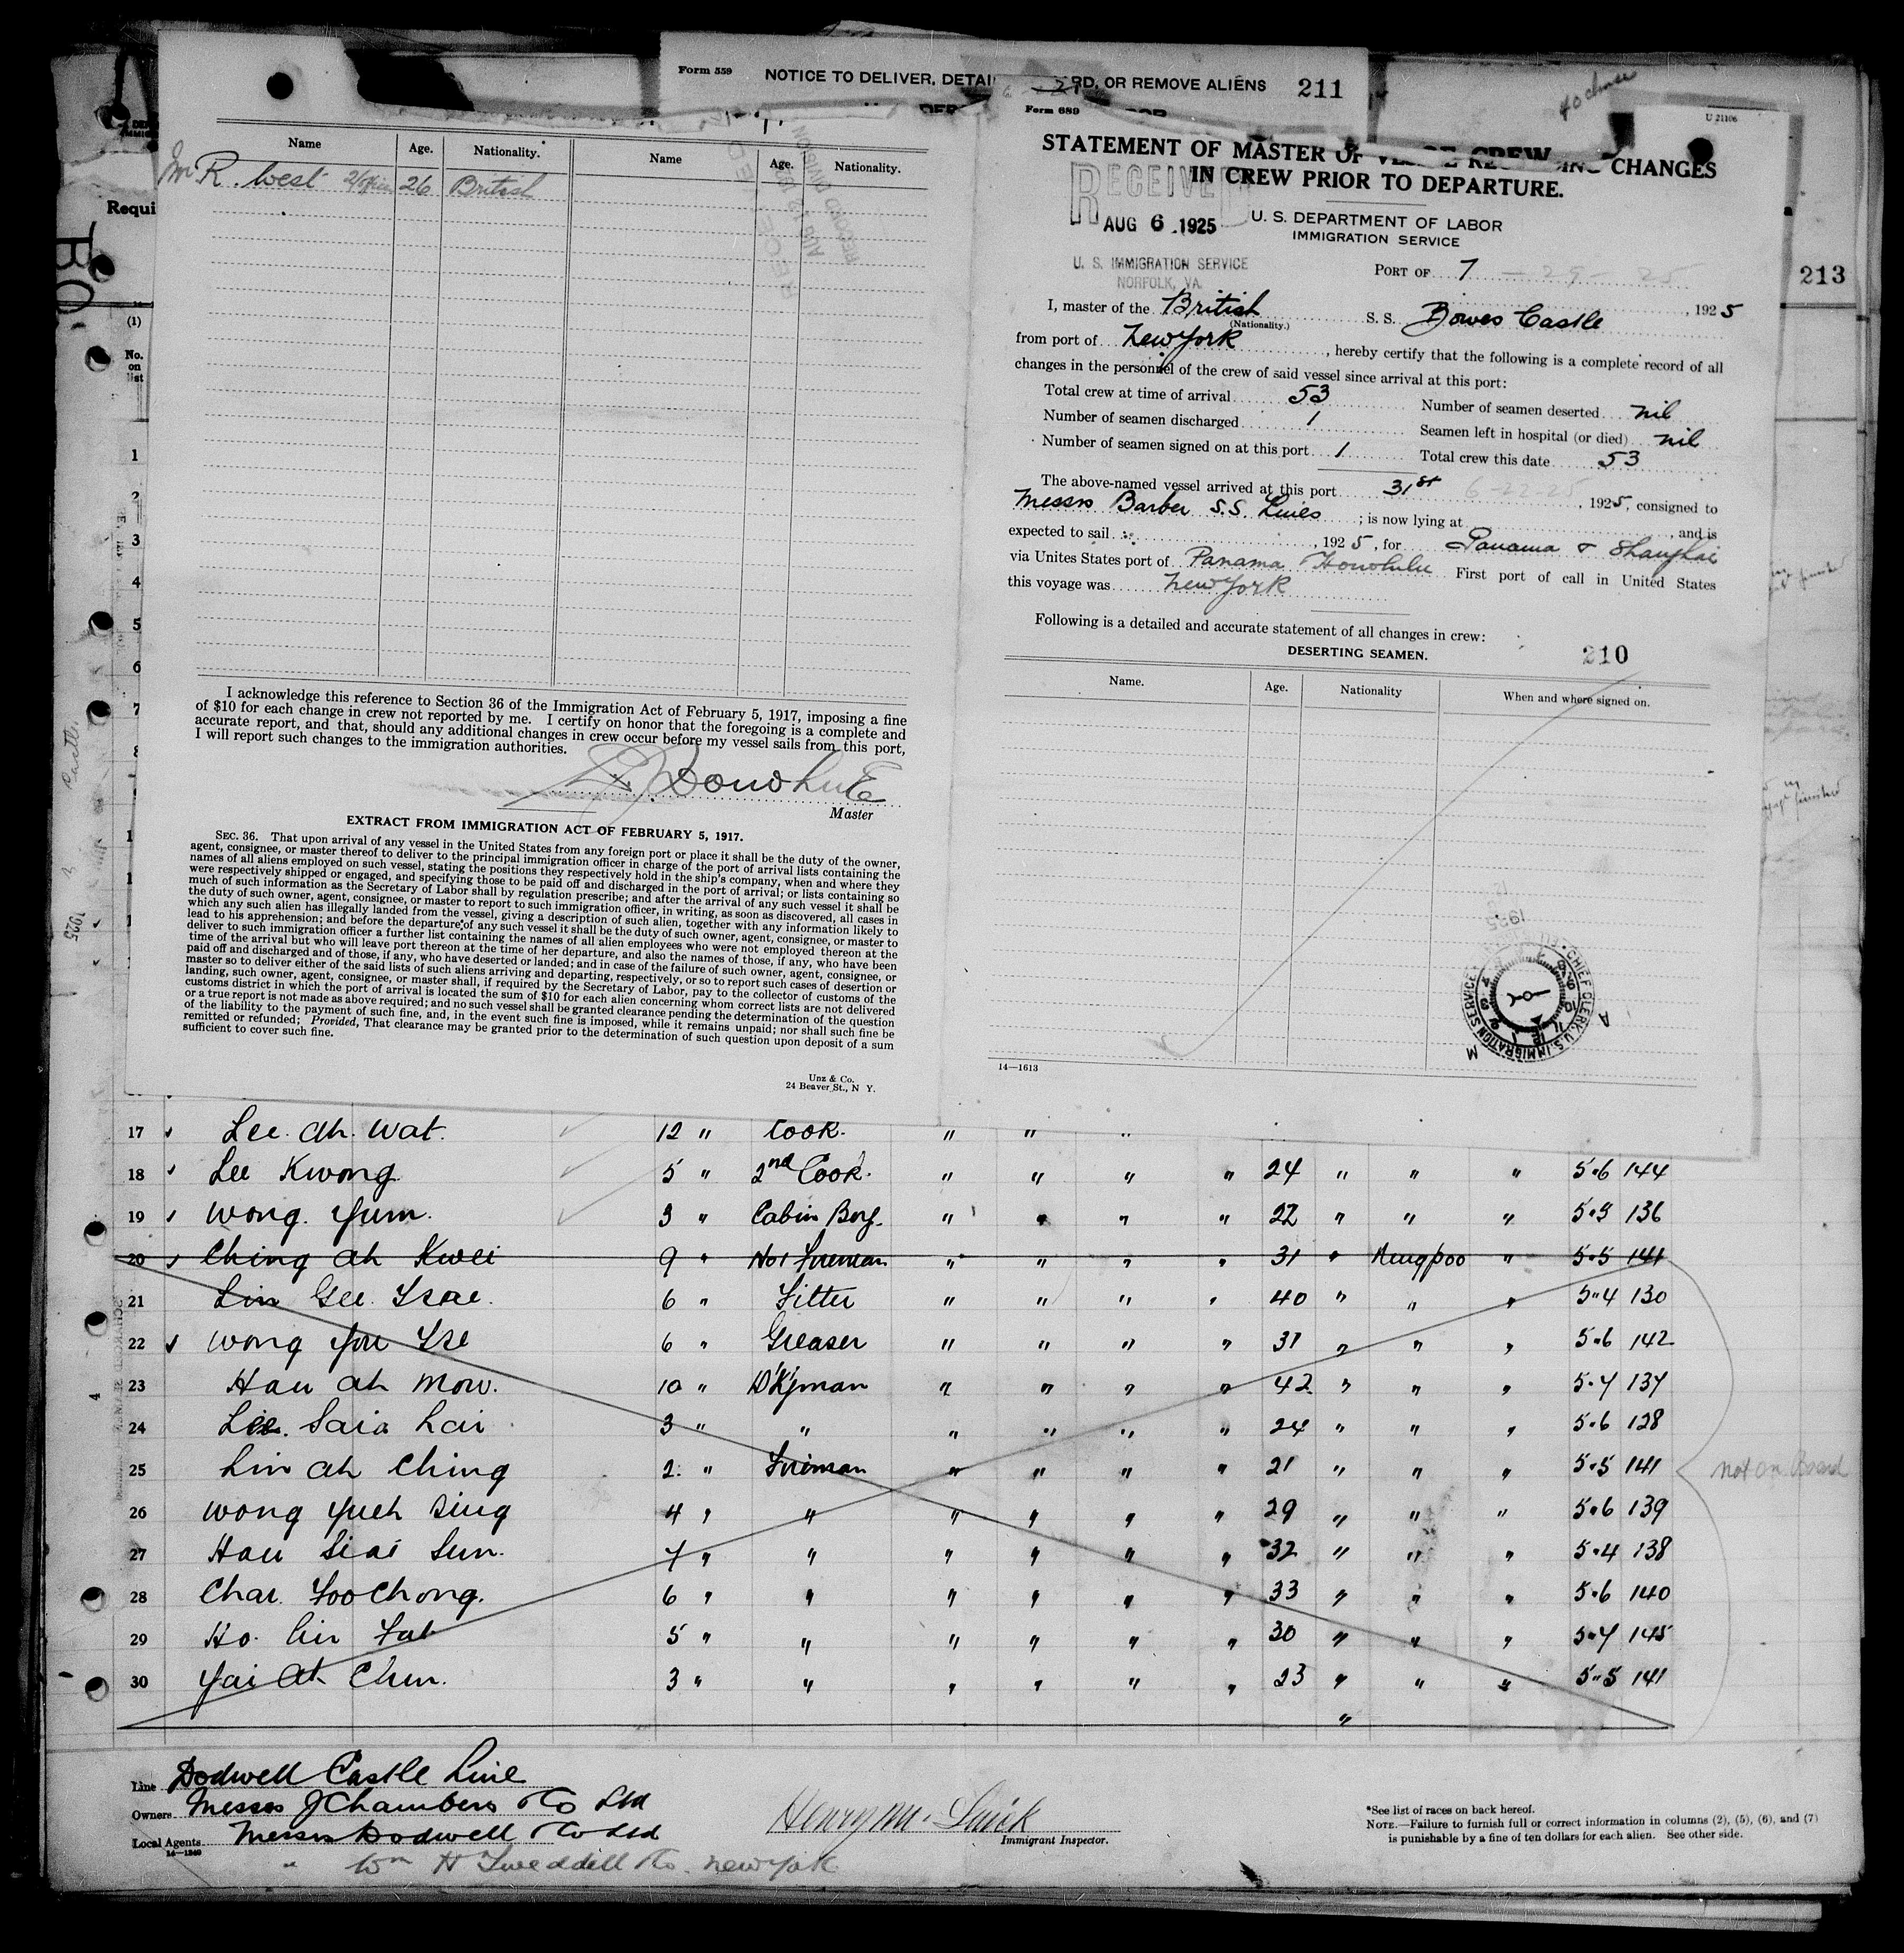 Form 559 NOTICE TO DELIVER, DETAI RD, OR REMOVE ALIENS 211
213
U 21106
Requi
(1)
No. on list
Name Age. Nationality. Name Age. Nationality.
Mr R. West 2/officer 26 British
I acknowledge this reference to Section 36 of the Immigration Act of February 5, 1917, imposing a fine
of $10 for each change in crew not reported by me. I certify on honor that the foregoing is a complete and
accurate report, and that, should any additional changes in crew occur before my vessel sails from this port,
I will report such changes to the immigration authorities.
Donohue
Master
EXTRACT FROM IMMIGRATION ACT OF FEBRUARY 5, 1917.
SEC. 36. That upon arrival of any vessel in the United States from any foreign port or place it shall be the duty of the owner,
agent, consignee, or master thereof to deliver to the principal immigration officer in charge of the port of arrival lists containing the
names of all aliens employed on such vessel, stating the positions they respectively hold in the ship's company, when and where they
were respectively shipped or engaged, and specifying those to be paid off and discharged in the port of arrival; or lists containing so
much of such information as the Secretary of Labor shall by regulation prescribe; and after the arrival of any such vessel it shall be
the duty of such owner, agent, consignee, or master to report to such immigration officer, in writing, as soon as discovered, all cases in
which any such alien has illegally landed from the vessel, giving a description of such alien, together with any information likely to
lead to his apprehension; and before the departure of any such vessel it shall be the duty of such owner, agent, consignee, or master to
deliver to such immigration officer a further list containing the names of all alien employees who were not employed thereon at the
time of the arrival but who will leave port thereon at the time of her departure, and also the names of those, if any, who have been
paid off and discharged and of those, if any, who have deserted or landed; and in case of the failure of such owner, agent, consignee, or
master so to deliver either of the said lists of such aliens arriving and departing, respectively, or so to report such cases of desertion or
landing, such owner, agent, consignee, or master shall, if required by the Secretary of Labor, pay to the collector of customs of the
customs district in which the port of arrival is located the sum of $10 for each alien concerning whom correct lists are not delivered
or a true report is not made as above required; and no such vessel shall be granted clearance pending the determination of the question
of the liability to the payment of such fine, and, in the event such fine is imposed, while it remains unpaid; nor shall such fine be
remitted or refunded; Provided, That clearance may be granted prior to the determination of such question upon deposit of a sum
sufficient to cover such fine.
Unz & Co.
24 Beaver St., N Y.
Form 689
STATEMENT OF MASTER OF CHANGES
IN CREW PRIOR TO DEPARTURE.
RECEIVED
AUG 6 1925
U. S. IMMIGRATION SERVICE
NORFOLK, VA.
U. S. DEPARTMENT OF LABOR
IMMIGRATION SERVICE
PORT OF 7 - 29 - 25
, 1925
I, master of the British S. S. Bowes Castle
(Nationality.)
from port of New York , hereby certify that the following is a complete record of all
changes in the personnel of the crew of said vessel since arrival at this port:
Total crew at time of arrival 53 Number of seamen deserted nil
Number of seamen discharged 1 Seamen left in hospital (or died) nil
Number of seamen signed on at this port 1 Total crew this date 53
The above-named vessel arrived at this port 31st 6-22-25, 1925, consigned to
Messrs Barber S.S. Lines ; is now lying at , and is
expected to sail , 1925, for Panama & Shanghai
via Unites States port of Panama Honolulu First port of call in United States
this voyage was New York
Following is a detailed and accurate statement of all changes in crew:
DESERTING SEAMEN. 210
Name. Age. Nationality When and where signed on.
CHIEF CLERK U.S. IMMIGRATION SERVICE
14—1613
17 Lee. Ah. Wat. 12 " Cook. " " "
18 Lee Kwong 5 " 2nd Cook. " " " " 24 " " " 5.6 144
19 Wong. Yum. 3 " Cabin Boy. " " " " 22 " " " 5.3 136
20 Ching Ah Kwei 9 " No 1 Fireman " " " " 31 " Ningpoo " 5.5 141
21 Lin Gee Tsae. 6 " Fitter " " " " 40 " " " 5.4 130
22 Wong You Tse 6 " Greaser " " " " 31 " " " 5.6 142
23 Hau Ah Mow. 10 " D'K'yman " " " " 42 " " " 5.7 137
24 Lee. Saia Lai 3 " " " " " " 24 " " " 5.6 128
25 Lin Ah Ching 2. " Fireman " " " " 21 " " " 5.5 141
26 Wong Yueh Sing 4 " " " " " " 29 " " " 5.6 139
27 Hau Siai Sun. 7 " " " " " " 32 " " " 5.4 138
28 Char. Foo Chong. 6 " " " " " " 33 " " " 5.6 140
29 Ho. Lin Fat 5 " " " " " " 30 " " " 5.7 145
30 Yai At Chun. 3 " " " " " " 23 " " " 5.5 141
not on Board
Line Dodwell Castle Line
Owners Messrs J Chambers & Co Ltd
Local Agents Messrs Dodwell & Co Ltd
14—1240
" Wm H Tweddell & Co. New York
Henry M.
Immigrant Inspector.
*See list of races on back hereof.
NOTE.—Failure to furnish full or correct information in columns (2), (5), (6), and (7)
is punishable by a fine of ten dollars for each alien. See other side.